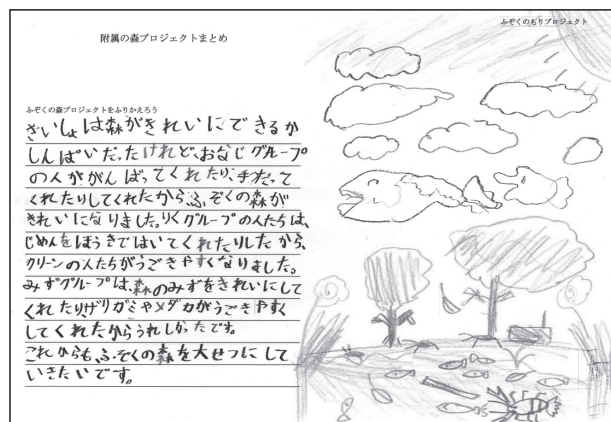 ふぞくのもりプロジェクト
附属の森プロジェクトまとめ
ふぞくの森プロジェクトをふりかえろう
さいしょは森がきれいにできるか
しんぱいだったけれど、おなじグループ
の人ががんばってくれたり、手だって
くれたりしてくれたから、ふぞくの森が
きれいになりました。りくグループの人たちは、
じめんをほうきではいてくれたりしたから、
クリーンの人たちがうごきやすくなりました。
みずグループは、森のみずをきれいにして
くれたりザリガニやメダカがうごきやすく
してくれたからうれしかったです。
これからも、ふぞくの森を大せつにして
いきたいです。